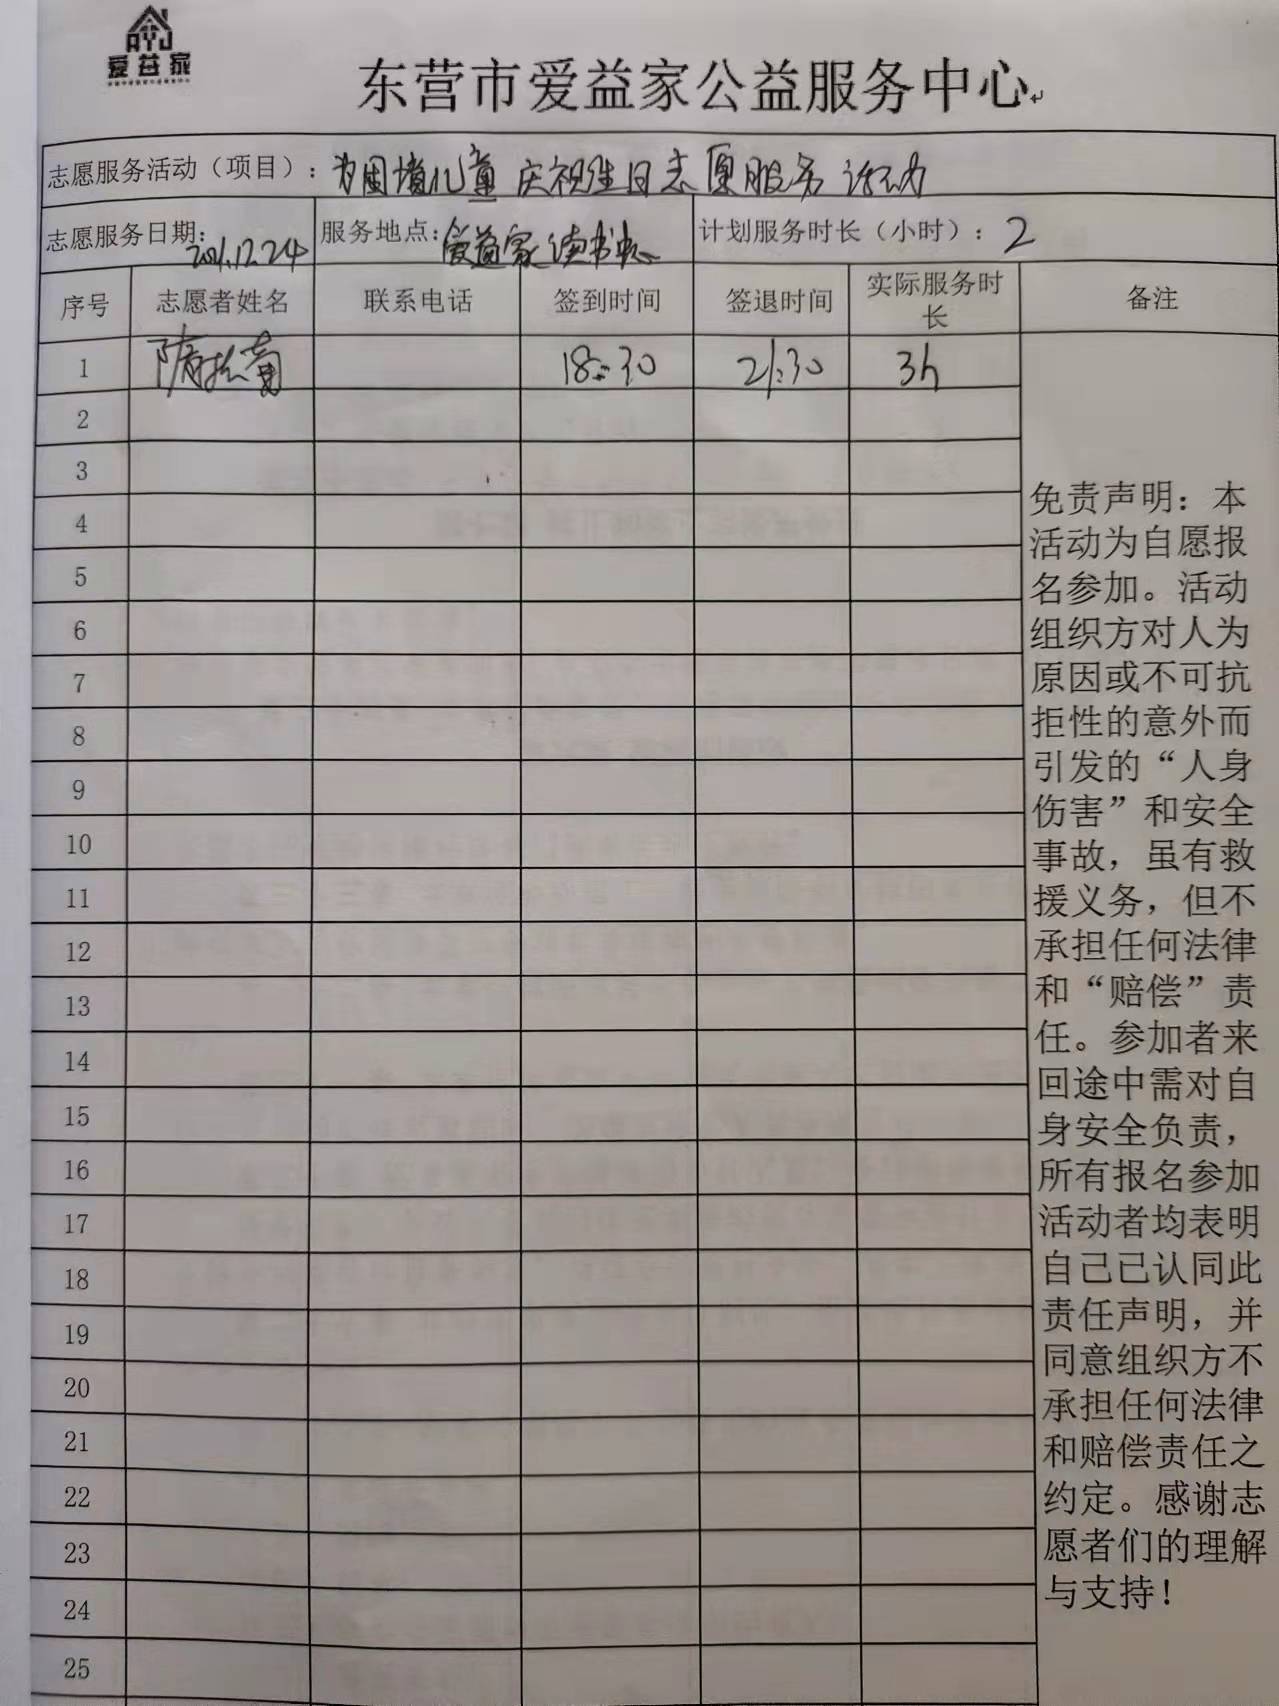 AYJ
爱益家
东营市爱益家公益服务中心
志愿服务活动（项目）：为困境儿童庆祝生日志愿服务活动
志愿服务日期：2021.12.24 服务地点：爱益家读书中心 计划服务时长（小时）：2
序号 志愿者姓名 联系电话 签到时间 签退时间 实际服务时长 备注
1 18:30 21:30 3h
2
3
4
5
6
7
8
9
10
11
12
13
14
15
16
17
18
19
20
21
22
23
24
25
免责声明：本
活动为自愿报
名参加。活动
组织方对人为
原因或不可抗
拒性的意外而
引发的“人身
伤害”和安全
事故，虽有救
援义务，但不
承担任何法律
和“赔偿”责
任。参加者来
回途中需对自
身安全负责，
所有报名参加
活动者均表明
自己已认同此
责任声明，并
同意组织方不
承担任何法律
和赔偿责任之
约定。感谢志
愿者们的理解
与支持！